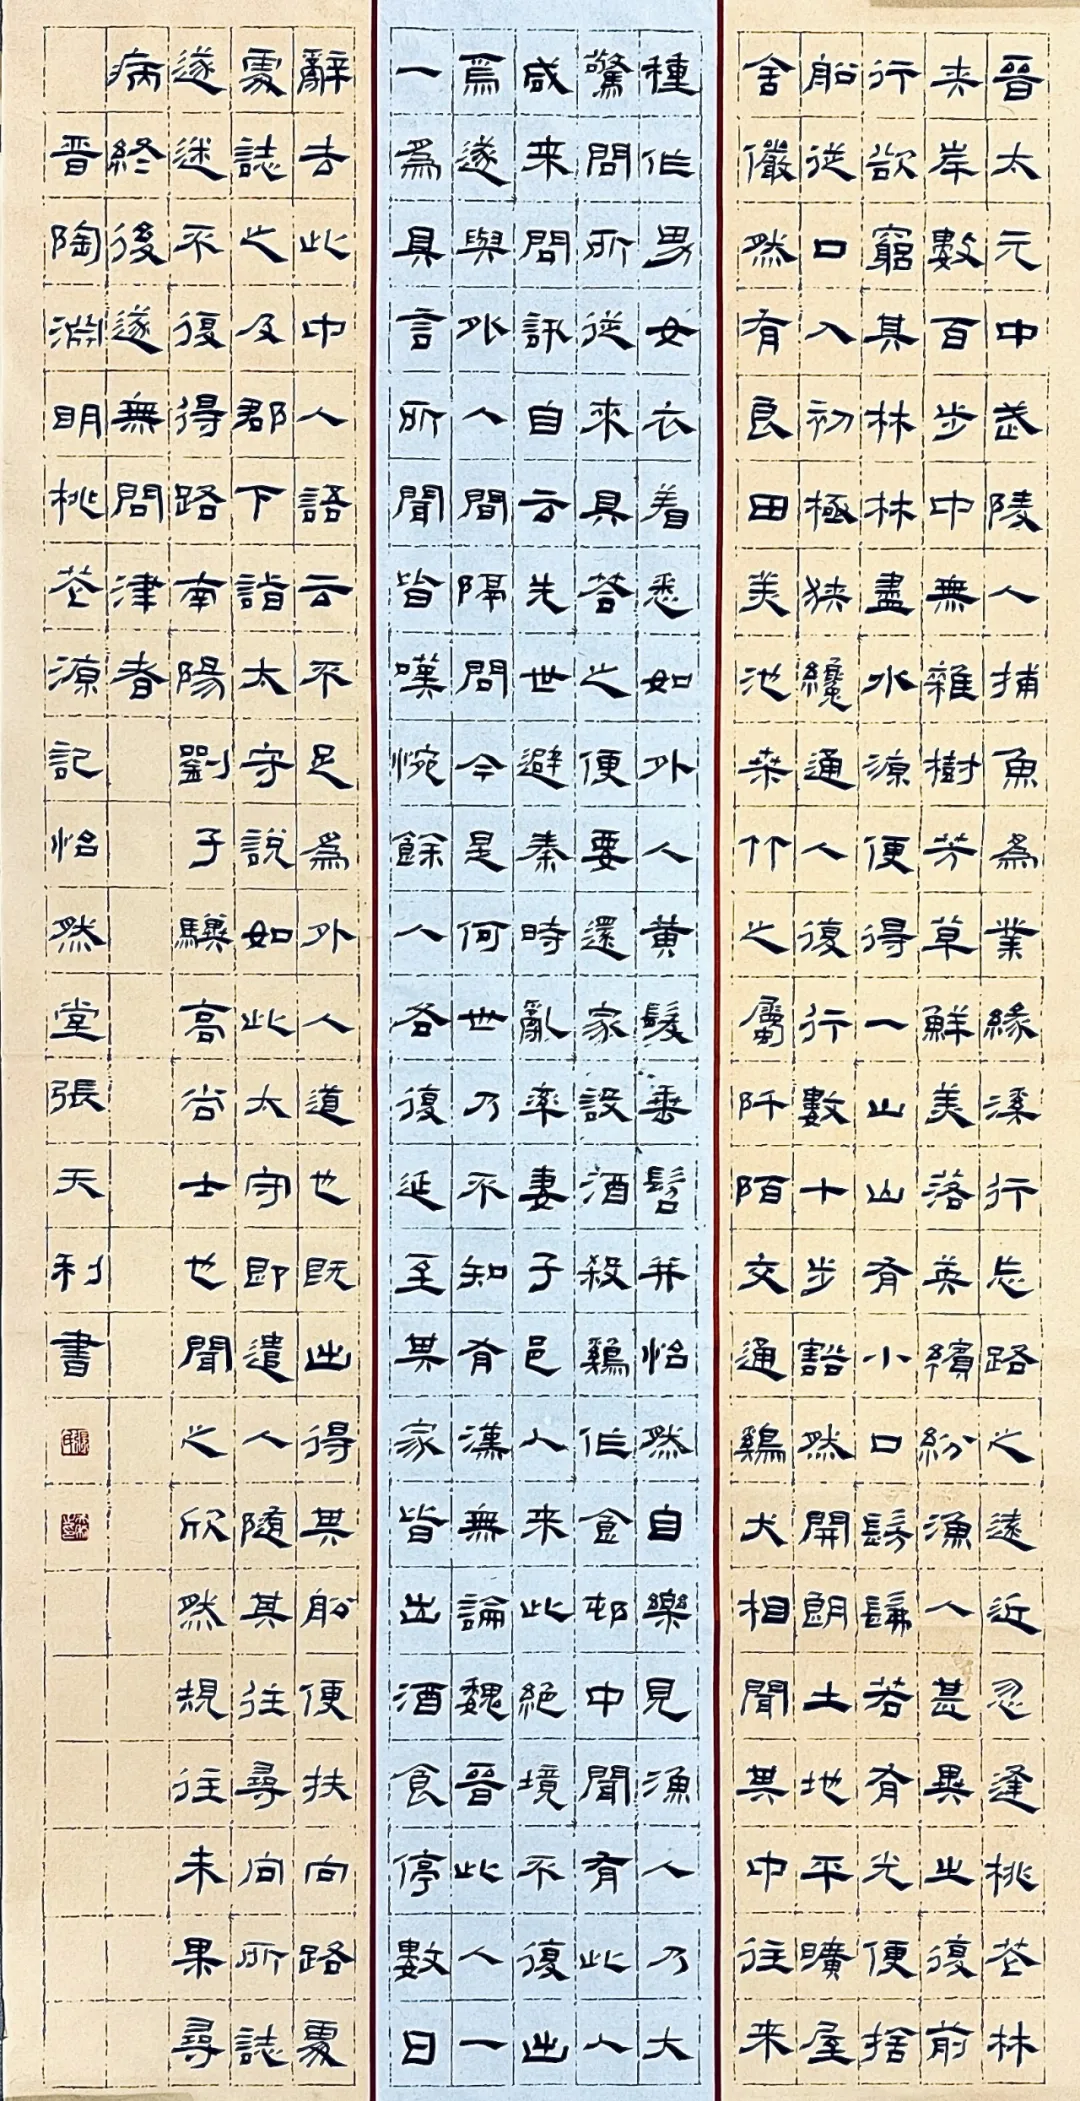 晉太元中武陵人捕魚為業緣溪行忘路之遠近忽逢桃花林
夾岸數百步中無雜樹芳草鮮美落英繽紛漁人甚異之復前
行欲窮其林林盡水源便得一山山有小口髣髴若有光便捨
船從口入初極狹纔通人復行數十步豁然開朗土地平曠屋
舍儼然有良田美池桑竹之屬阡陌交通鷄犬相聞其中往來
種作男女衣着悉如外人黃髮垂髫并怡然自樂見漁人乃大
驚問所從來具答之便要還家設酒殺鷄作食邨中聞有此人
咸来問訊自云先世避秦時亂率妻子邑人来此絕境不復出
焉遂與外人間隔問今是何世乃不知有漢無論魏晉此人一
一為具言所聞皆嘆惋餘人各復延至其家皆出酒食停數日
辭去此中人語云不足為外人道也既出得其船便扶向路處
處誌之及郡下詣太守說如此太守即遣人隨其往尋向所誌
遂迷不復得路南陽劉子驥高尚士也聞之欣然規往未果尋
病終後遂無問津者
晉陶淵明桃花源記怡然堂張天利書